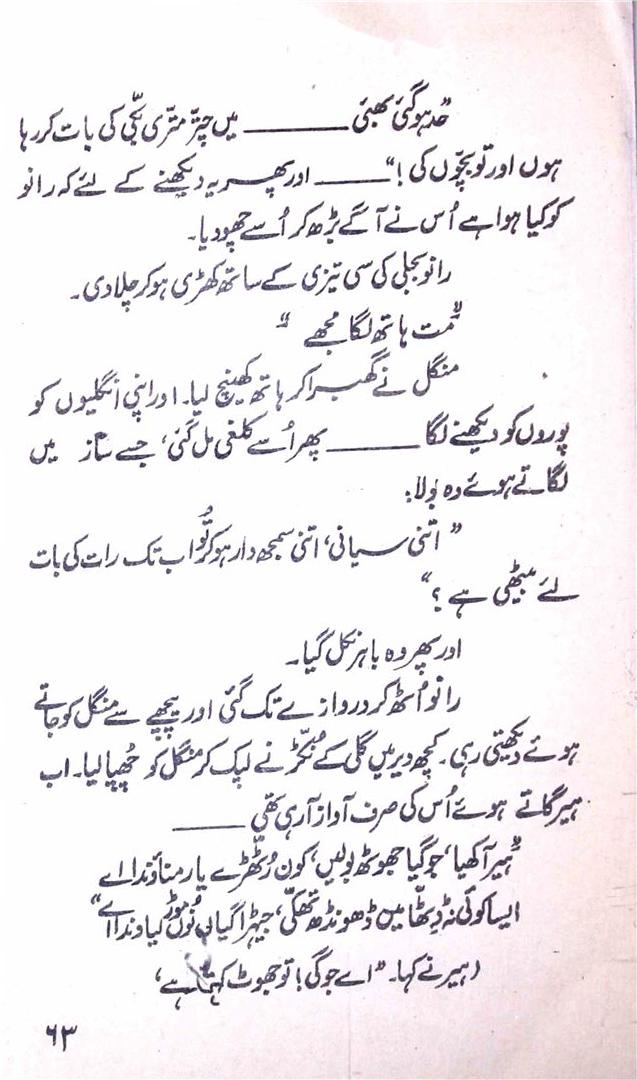 ”حد ہو گئی بھئی ــــــــــ میں چتر متری بکّی کی بات کر رہا
ہوں اور تو بچّوں کی !“ ــــــــــ اور پھر یہ دیکھنے کے لئے کہ رانو
کو کیا ہوا ہے اُس نے آگے بڑھ کر اُسے چھو دیا۔
رانو بجلی کی سی تیزی کے ساتھ کھڑی ہو کر چلا دی۔
”مت ہاتھ لگا مجھے “
منگل نے گھبرا کر ہاتھ کھینچ لیا۔ اور اپنی انگلیوں کو
پوروں کو دیکھنے لگا ــــــــــ پھر اُسے کلغی مل گئی، جسے ساز میں
لگاتے ہوئے وہ بولا:
” اتنی سیانی، اتنی سمجھ دار ہو کر تُو اب تک رات کی بات
لئے بیٹھی ہے ؟“
اور پھر وہ باہر نکل گیا۔
رانو اُٹھ کر دروازے تک گئی اور پیچھے سے منگل کو جاتے
ہوئے دیکھتی رہی۔ کچھ دیر میں گلی کے نکّڑ نے لپک کر منگل کو چُھپا لیا۔ اب
ہیر گاتے ہوئے اُس کی صرف آواز آ رہی تھی ــــــــــ
”ہیر آکھیا، جوگیا جھوٹھ بولیں، کون رُٹھڑے یار مناوندا اے
ایسا کوئی نہ ڈِٹھا میں ڈھونڈھ تھکی، جیہڑا گیاں نُوں موڑ لیاوندا اے“
(ہیر نے کہا۔ ”اے جوگی! تو جھوٹ کہتا ہے،
۶۳